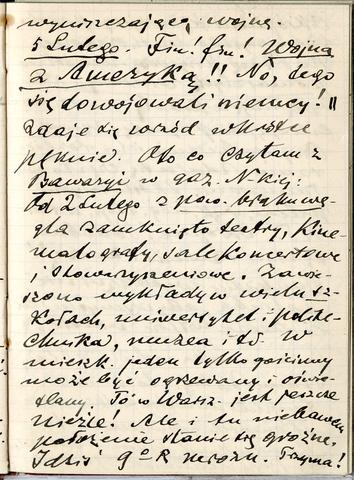 wyniszczającą wojnę.
5 Lutego. Fiu! fiu! Wojna
z Ameryką!! No, tego
się dowojowali niemcy!
Zdaje się wrzód wkrótce
pęknie. Oto co czytam z
Bawaryi w gaz. N-kiej:
Od 2 Lutego z pow. braku wę-
gla zamknięto teatry, Kine-
matografy, sale koncertowe
i stowarzyszeniowe. Zawie-
szono wykłady w wielu sz-
kołach, uniwersytet i polite-
chnika, muzea i t.d. W
mieszk. jeden tylko gościnny
może być ogrzewany i oświe-
tlany To w Warsz. jest jeszcze
nieźle! Ale i tu niebawem
położenie stanie się groźne.
I dziś 9° R mrozu. Trzyma!